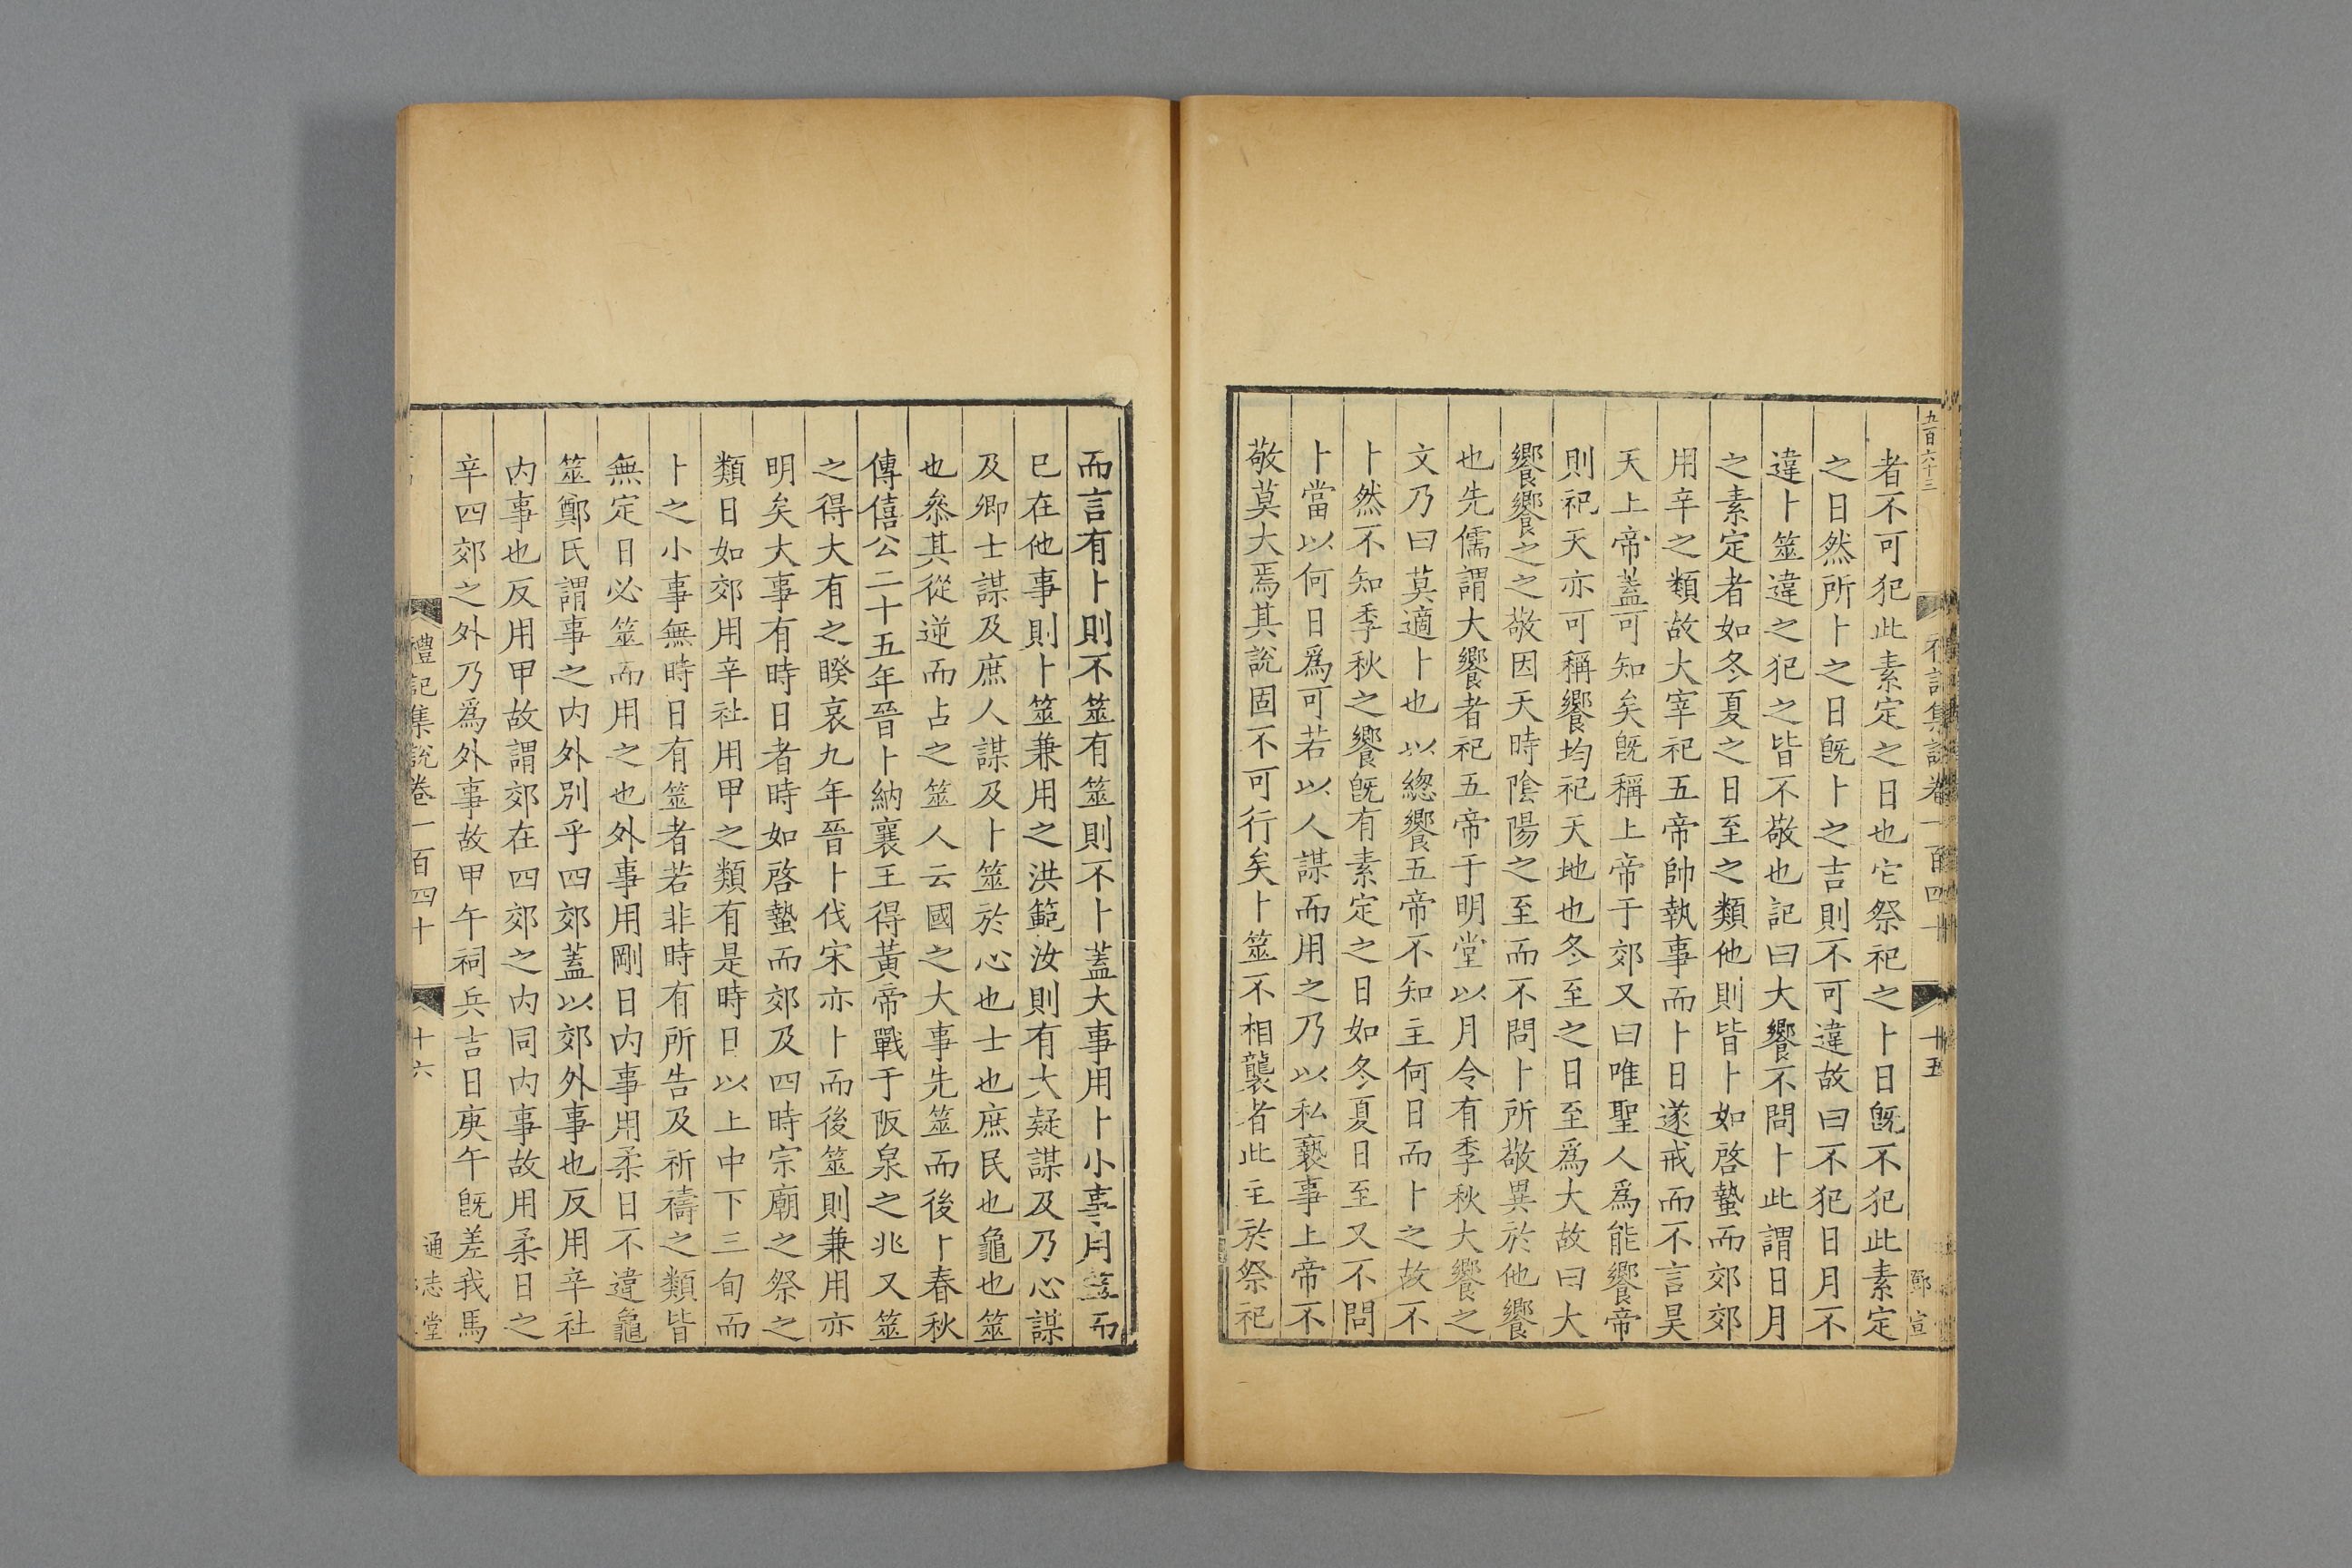 五百六十三
禮記集說卷一百四十
十五
鄧宣
者不可犯此素定之日也它祭祀之卜日旣不犯此素定
之日然所卜之日旣卜之吉則不可違故曰不犯日月不
違卜筮違之犯之皆不敬也記曰大饗不問卜此謂日月
之素定者如冬夏之日至之類他則皆卜如啓蟄而郊郊
用辛之類故大宰祀五帝帥執事而卜日遂戒而不言昊
天上帝蓋可知矣旣稱上帝于郊又曰唯聖人爲能饗帝
則祀天亦可稱饗均祀天地也冬至之日至爲大故曰大
饗饗之之敬因天時陰陽之至而不問卜所敬異於他饗
也先儒謂大饗者祀五帝于明堂以月令有季秋大饗之
文乃曰莫適卜也以緫饗五帝不知主何日而卜之故不
卜然不知季秋之饗旣有素定之日如冬夏日至又不問
卜當以何日爲可若以人謀而用之乃以私褻事上帝不
敬莫大焉其說固不可行矣卜筮不相襲者此主於祭祀
而言有卜則不筮有筮則不卜蓋大事用卜小事用筮而
已在他事則卜筮兼用之洪範汝則有大疑謀及乃心謀
及卿士謀及庶人謀及卜筮於心也士也庶民也龜也筮
也叅其從逆而占之筮人云國之大事先筮而後卜春秋
傳僖公二十五年晉卜納襄王得黃帝戰于阪泉之兆又筮
之得大有之睽哀九年晉卜伐宋亦卜而後筮則兼用亦
明矣大事有時日者時如啓蟄而郊及四時宗廟之祭之
類日如郊用辛社用甲之類有是時日以上中下三旬而
卜之小事無時日有筮者若非時有所告及祈禱之類皆
無定日必筮而用之也外事用剛日內事用柔日不違龜
筮鄭氏謂事之內外別乎四郊蓋以郊外事也反用辛社
內事也反用甲故謂郊在四郊之內同內事故用柔日之
辛四郊之外乃爲外事故甲午祠兵吉日庚午旣差我馬
禮記集說卷一百四十
十六
通志堂